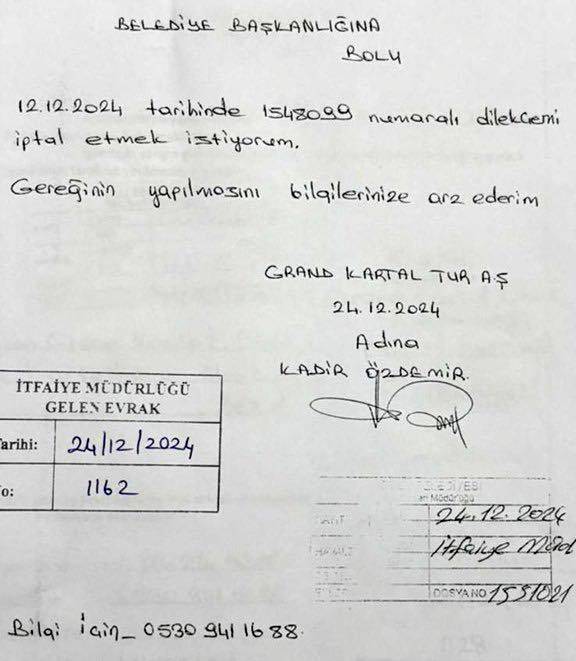 BELEDİYE BAŞKANLIĞINA
BOLU
12.12.2024 tarihinde 1548099 numaralı dilekçemi
iptal etmek istiyorum.
Gereğinin yapılmasını bilgilerinize arz ederim
GRAND KARTAL TUR A.Ş
24.12.2024
Adına
KADİR ÖZDEMİR
İTFAİYE MÜDÜRLÜĞÜ
GELEN EVRAK
arihi: 24/12/2024
o: 1162
24.12.2024
İtfaiye Müd
DOSYA NO 1551021
Bilgi için_ 0530 941 16 88